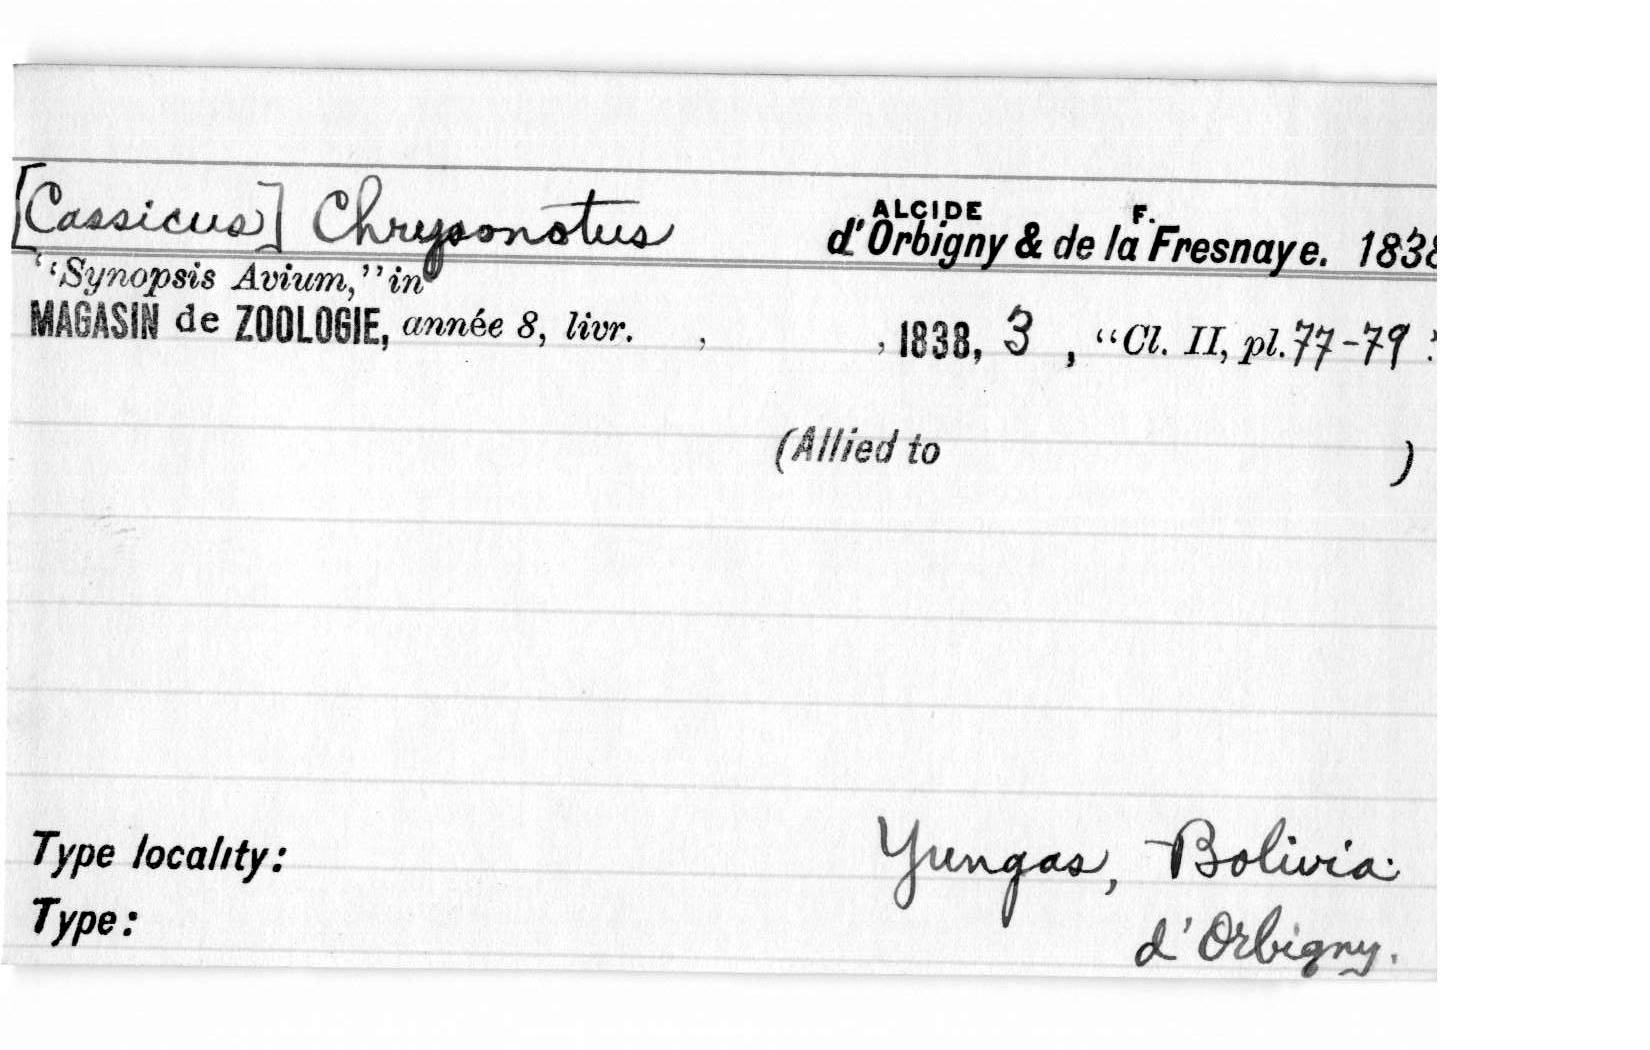 [Cassicus] Chrysonotus ALCIDE d'Orbigny & de la F. Fresnaye. 1838
"Synopsis Avium," in
MAGASIN de ZOOLOGIE, année 8, livr. , , 1838, 3 , "Cl. II, pl. 77-79
(Allied to )
Type locality: Yungas, Bolivia.
Type: d'Orbigny.